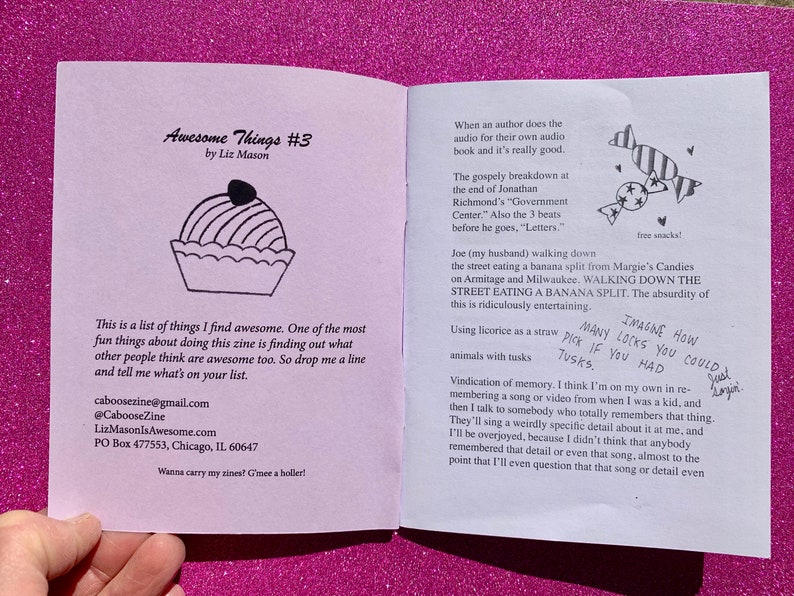 Awesome Things #3
by Liz Mason
This is a list of things I find awesome. One of the most
fun things about doing this zine is finding out what
other people think are awesome too. So drop me a line
and tell me what's on your list.
caboosezine@gmail.com
@CabooseZine
LizMasonIsAwesome.com
PO Box 477553, Chicago, IL 60647
Wanna carry my zines? G'mee a holler!
When an author does the
audio for their own audio
book and it's really good.
The gospely breakdown at
the end of Jonathan
Richmond's “Government
Center.” Also the 3 beats
before he goes, “Letters.”
free snacks!
Joe (my husband) walking down
the street eating a banana split from Margie's Candies
on Armitage and Milwaukee. WALKING DOWN THE
STREET EATING A BANANA SPLIT. The absurdity of
this is ridiculously entertaining.
Using licorice as a straw
animals with tusks
IMAGINE HOW
MANY LOCKS YOU COULD
PICK IF YOU HAD
TUSKS.
Just
sayin'.
Vindication of memory. I think I'm on my own in re-
membering a song or video from when I was a kid, and
then I talk to somebody who totally remembers that thing.
They'll sing a weirdly specific detail about it at me, and
I'll be overjoyed, because I didn't think that anybody
remembered that detail or even that song, almost to the
point that I'll even question that that song or detail even